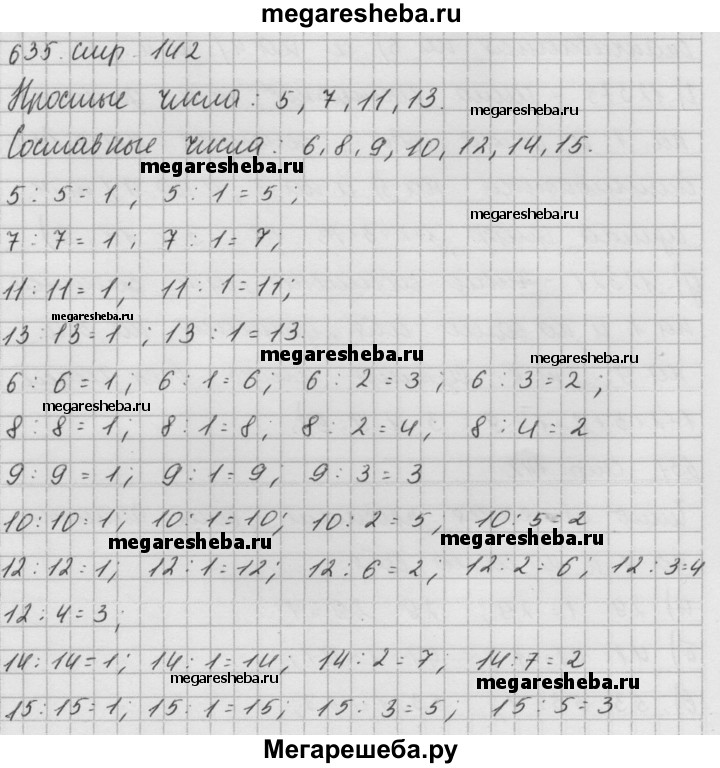 megaresheba.ru
635. стр. 142
Простые числа: 5, 7, 11, 13.
megaresheba.ru
Составные числа: 6, 8, 9, 10, 12, 14, 15.
megaresheba.ru
5 : 5 = 1; 5 : 1 = 5;
megaresheba.ru
7 : 7 = 1; 7 : 1 = 7;
11 : 11 = 1; 11 : 1 = 11;
megaresheba.ru
13 : 13 = 1; 13 : 1 = 13.
megaresheba.ru
megaresheba.ru
6 : 6 = 1; 6 : 1 = 6; 6 : 2 = 3; 6 : 3 = 2;
megaresheba.ru
8 : 8 = 1; 8 : 1 = 8; 8 : 2 = 4; 8 : 4 = 2
9 : 9 = 1; 9 : 1 = 9; 9 : 3 = 3
10 : 10 = 1; 10 : 1 = 10; 10 : 2 = 5; 10 : 5 = 2
megaresheba.ru megaresheba.ru
12 : 12 = 1; 12 : 1 = 12; 12 : 6 = 2; 12 : 2 = 6; 12 : 3 = 4
12 : 4 = 3;
14 : 14 = 1; 14 : 1 = 14; 14 : 2 = 7; 14 : 7 = 2
megaresheba.ru megaresheba.ru
15 : 15 = 1; 15 : 1 = 15; 15 : 3 = 5; 15 : 5 = 3
Мегарешеба.ру